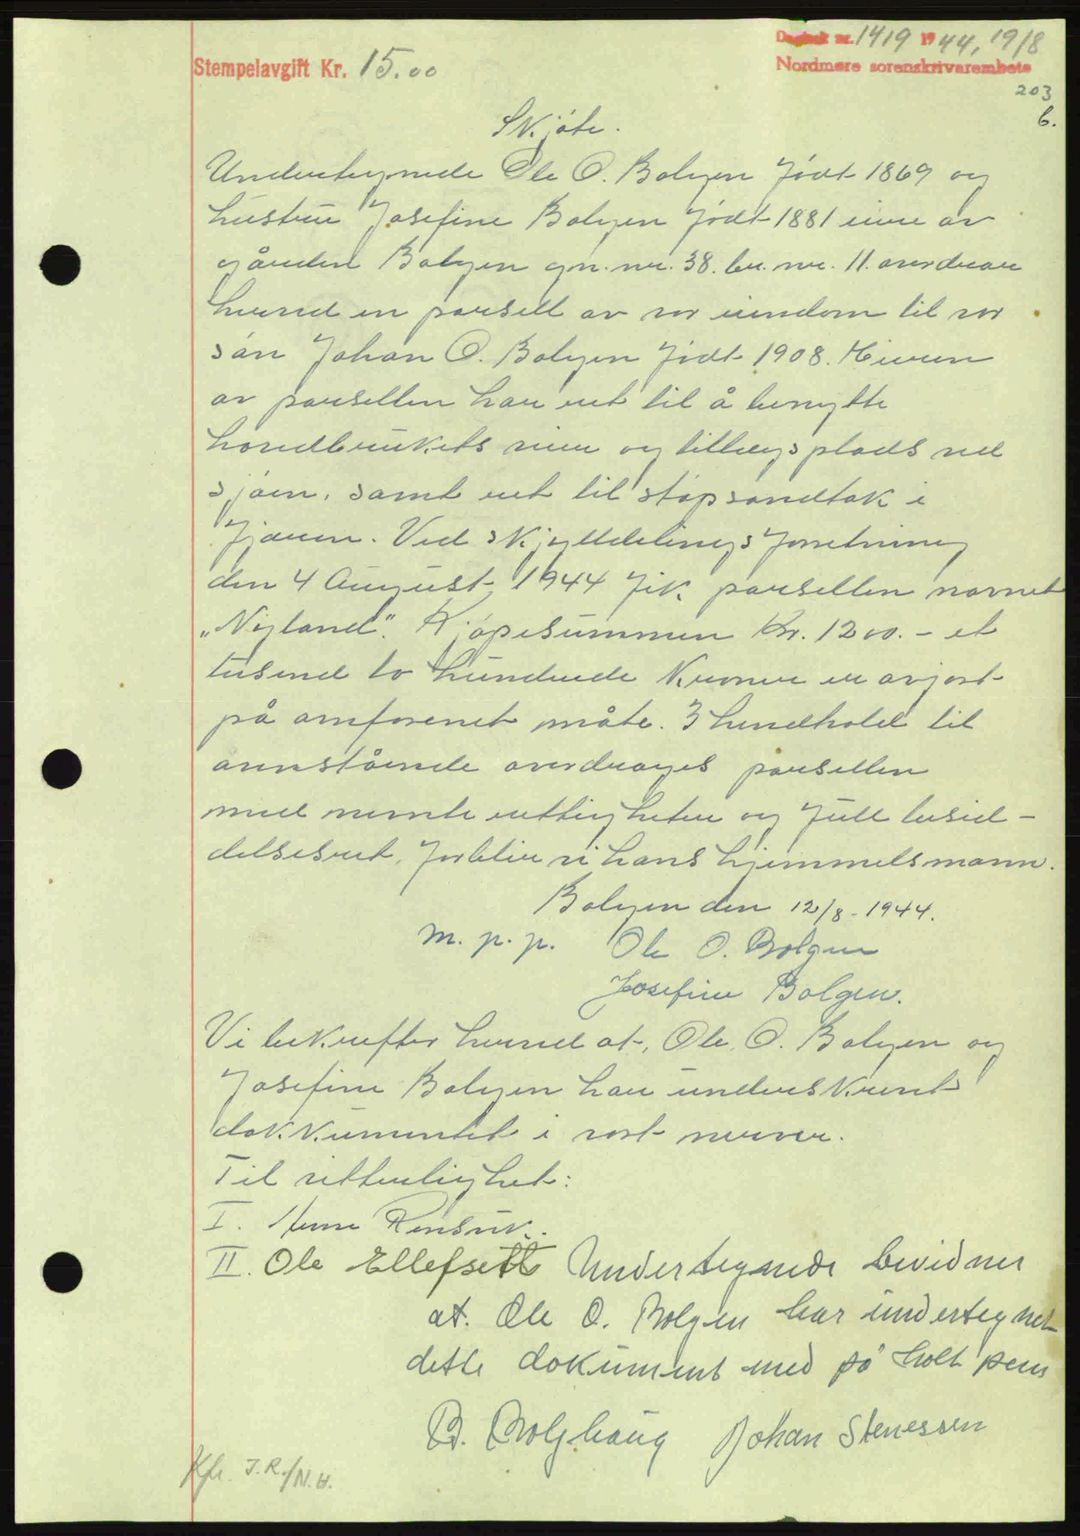 Dagbok nr. 1419 1944, 19/8
Stempelavgift Kr. 15.00
Nordmøre sorenskrivarembete
203
6.
Skjøte.
Undertegnede Ole O. Bolgen født 1869 og
hustru Josefine Bolgen født 1881 eiere av
gården Bolgen gn. nr. 38. br. nr. 11. overdrar
herved en parsell av vor eiendom til vor
søn Johan O. Bolgen født 1908. Eieren
av parsellen har ret til å benytte
hovedbrukets og tillegsplads ved
sjøen, samt ret til støpsandtak i
fjæren. Ved skylddelingsforretning
den 4 August 1944 fik parsellen navnet
„Nyland". Kjøpesummen Kr. 1200.- et
tusend to hundrede Kroner er avgjort
på omforenet måte. I hendhold til
ovenstående overdrages parsellen
med nevnte rettigheter og full besid-
delsesret, forblir vi hans hjemmelsmann.
Bolgen den 12/8-1944.
m. p. p. Ole O. Bolgen
Josefine Bolgen.
Vi bekrefter herved at, Ole, O. Bolgen og
Josefine Bolgen har underskrevet
dokkumentet i vort nerver.
Til vitterlighet:
I.
II. Ole Ellefsett Undertegnede bevidner
at. Ole O. Bolgen har undertegnet
dette dokument med på holt penn
B. Bolghaug Johan Stenessen
Kfr. J.R./N.H.